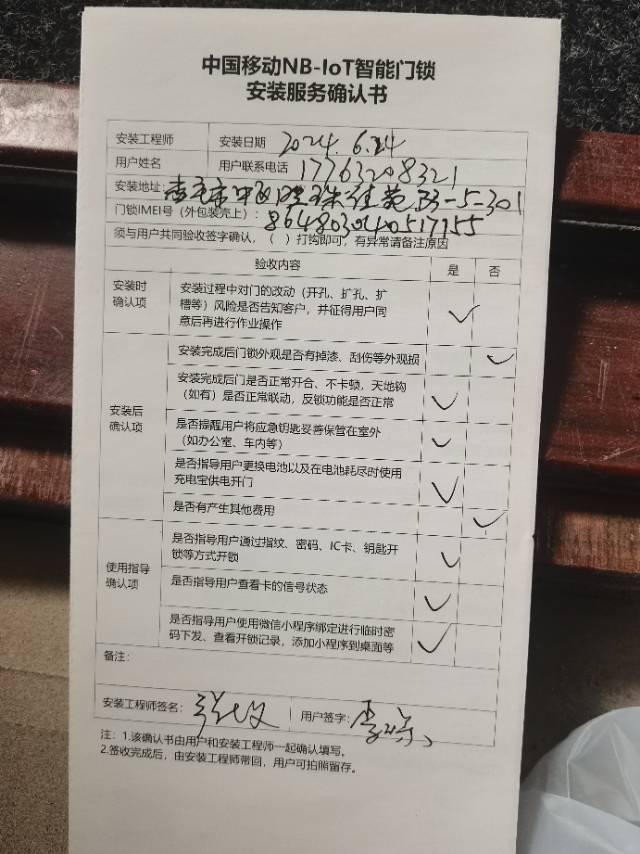 中国移动NB-IoT智能门锁
安装服务确认书
安装工程师 安装日期 2024.6.24
用户姓名 用户联系电话 17763208321
安装地址: 中 佳苑 B3-5-301
门锁IMEI号（外包装壳上）: 864803040517155
须与用户共同验收签字确认，（ ）打钩即可，有异常请备注原因
验收内容 是 否
安装时
确认项
安装过程中对门的改动（开孔、扩孔、扩
槽等）风险是否告知客户，并征得用户同
意后再进行作业操作 ✓
安装后
确认项
安装完成后门锁外观是否有掉漆、刮伤等外观损 ✓
安装完成后门是否正常开合、不卡顿，天地钩
（如有）是否正常联动，反锁功能是否正常 ✓
是否提醒用户将应急钥匙妥善保管在室外
（如办公室、车内等） ✓
是否指导用户更换电池以及在电池耗尽时使用
充电宝供电开门 ✓
是否有产生其他费用 ✓
使用指导
确认项
是否指导用户通过指纹、密码、IC卡、钥匙开
锁等方式开锁 ✓
是否指导用户查看卡的信号状态 ✓
是否指导用户使用微信小程序绑定进行临时密
码下发、查看开锁记录，添加小程序到桌面等 ✓
备注:
安装工程师签名: 用户签字: 李
注: 1.该确认书由用户和安装工程师一起确认填写。
2.签收完成后，由安装工程师带回，用户可拍照留存。